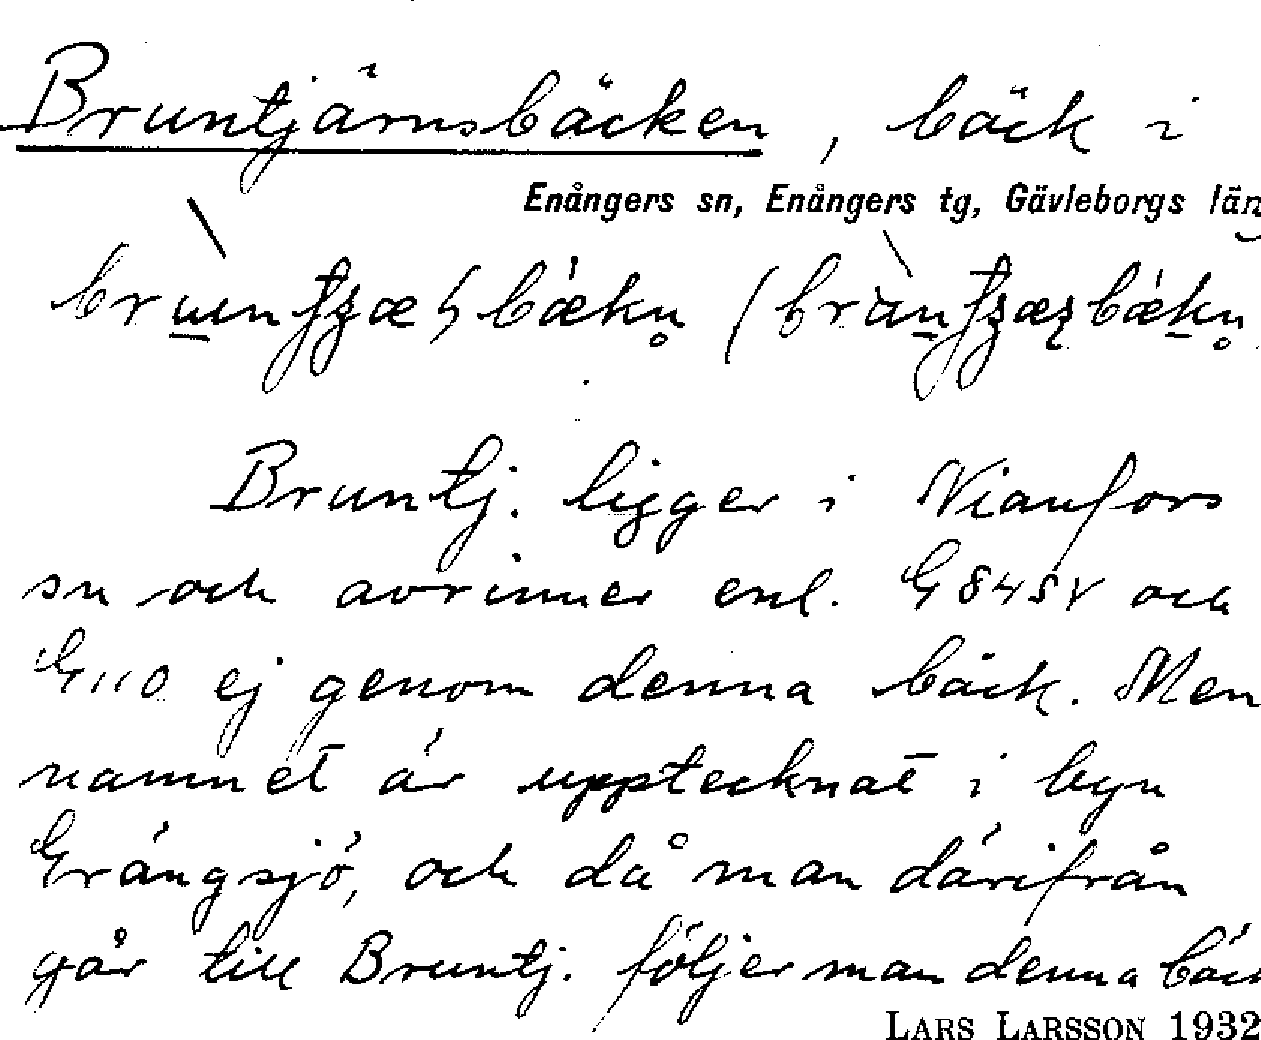 Bruntjärnsbäcken, bäck i
Enångers sn, Enångers tg, Gävleborgs län
Bruntj. ligger i Nianfors
sn och avrinner enl. G84SV och
G110 ej genom denna bäck. Men
namnet är upptecknat i byn
Grängsjö, och då man därifrån
går till Bruntj. följer man denna bäck
LARS LARSSON 1932